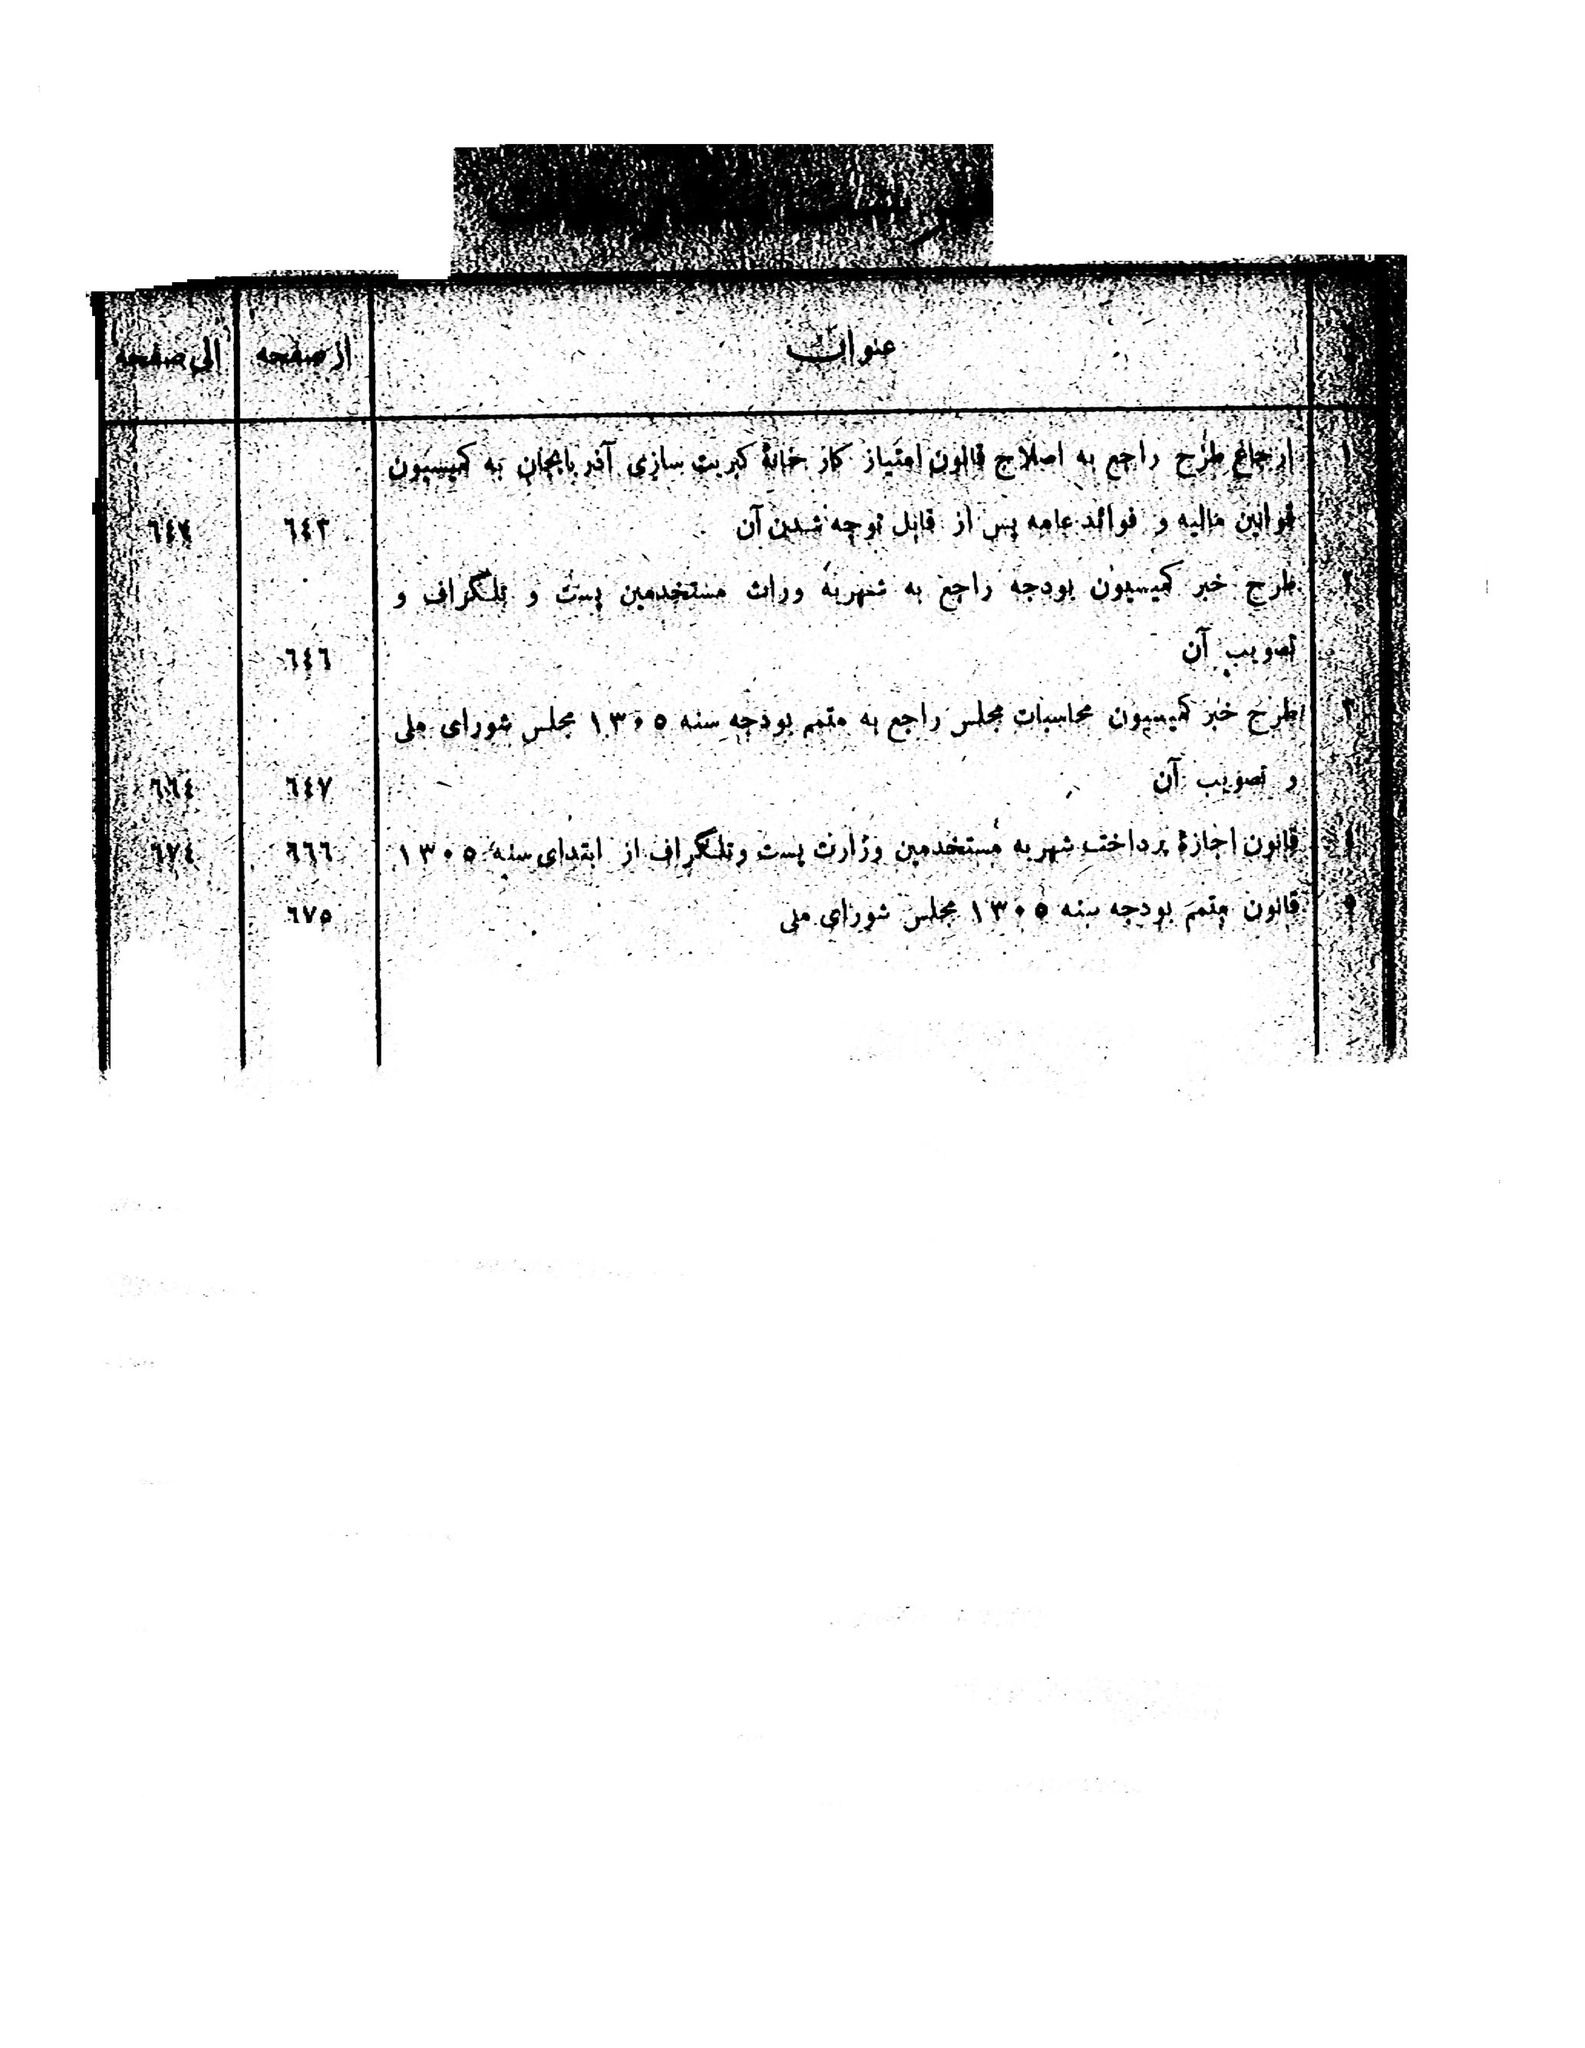 عنوان از صفحه الی صفحه
۱ ارجاع طرح راجع به اصلاح قانون امتیاز کارخانهٔ کبریت سازی آذربایجان به کمیسیون
قوانین مالیه و فوائد عامه پس از قابل توجه شدن آن ٦٤٣
طرح خبر کمیسیون بودجه راجع به شهریه وراث مستخدمین پست و تلگراف و
تصویب آن ٦٤٦
۳ طرح خبر کمیسیون محاسبات مجلس راجع به متمم بودجه سنه ۱۳۰۵ مجلس شورای ملی
و تصویب آن ٦٤٧ ٦٦٤
٤ قانون اجازهٔ پرداخت شهریه مستخدمین وزارت پست وتلگراف از ابتدای سنه ۱۳۰۵ ٦٦٦ ٦٧٤
۵ قانون متمم بودجه سنه ۱۳۰۵ مجلس شورای ملی ٦٧٥